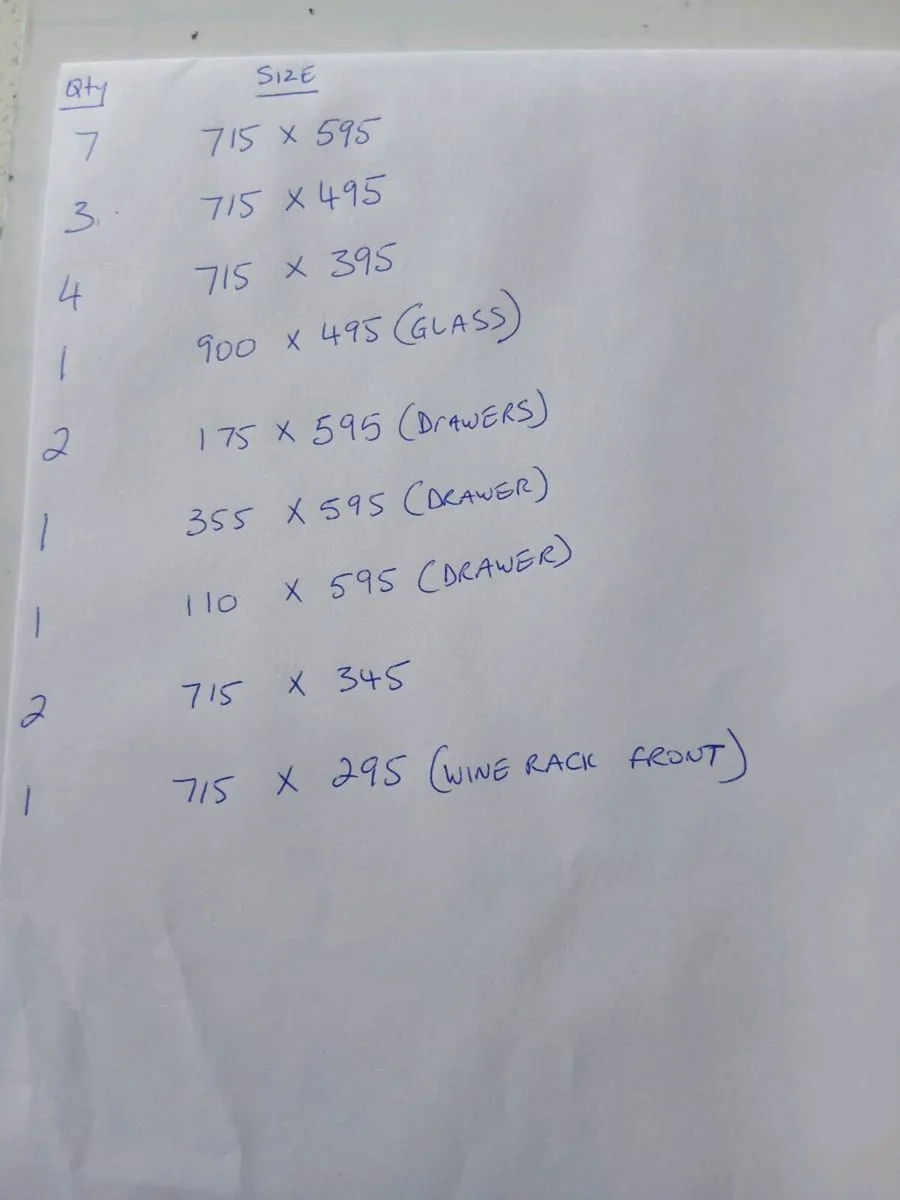 Qty SIZE
7 715 x 595
3 715 x 495
4 715 x 395
1 900 x 495 (GLASS)
2 175 x 595 (DrAWERS)
1 355 x 595 (DRAWER)
1 110 x 595 (DRAWER)
2 715 x 345
1 715 x 295 (WINE RACK FRONT)